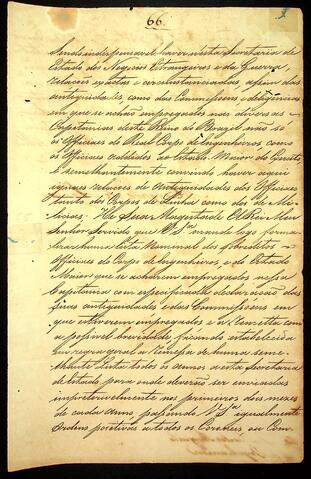 66.
Sendo indispensavel haver nesta Secretaria de
Estado dos Negocios Estrangeiros e da Guerra,
relações exactas e circunstanciadas assim das
antiguidades, como das Commissoens e deligencias
em que se achão empregados nas diversas
Capitanias deste Reino do Brazil não só
os Officiaes do Real Corpo de Engenheiros, como
os Officiaes addidos ao Estado Maior do Exercito
e semelhantemente convindo haver aqui
iguaes relacoes de Antiguidades dos Officiaes
tanto dos Corpos de Linha como dos de Mi-
licias; He Sua Magestade El Rei Meu
Senhor Servido que V. Sª mande logo forma-
lizar huma lista Nominal dos sobreditos
Officiaes do Corpo de Engenheiros e do Estado
Maior que se acharem empregados nessa
Capitania com especificavel declaração das
suas antiguidades e das Commissoens em
que estiverem empregados e a remetta com
a possivel brevidade ficando estabelecido
em regra geral a remessa de huma seme-
lhante Lista todos os annos a esta Secretaria
de Estado para onde deverão ser enviadas
impreterivelmente nos primeiros dois mezes
de cada anno, passando V. Sª igualmente
Ordens positivas a todos os Coroneis ou Com-